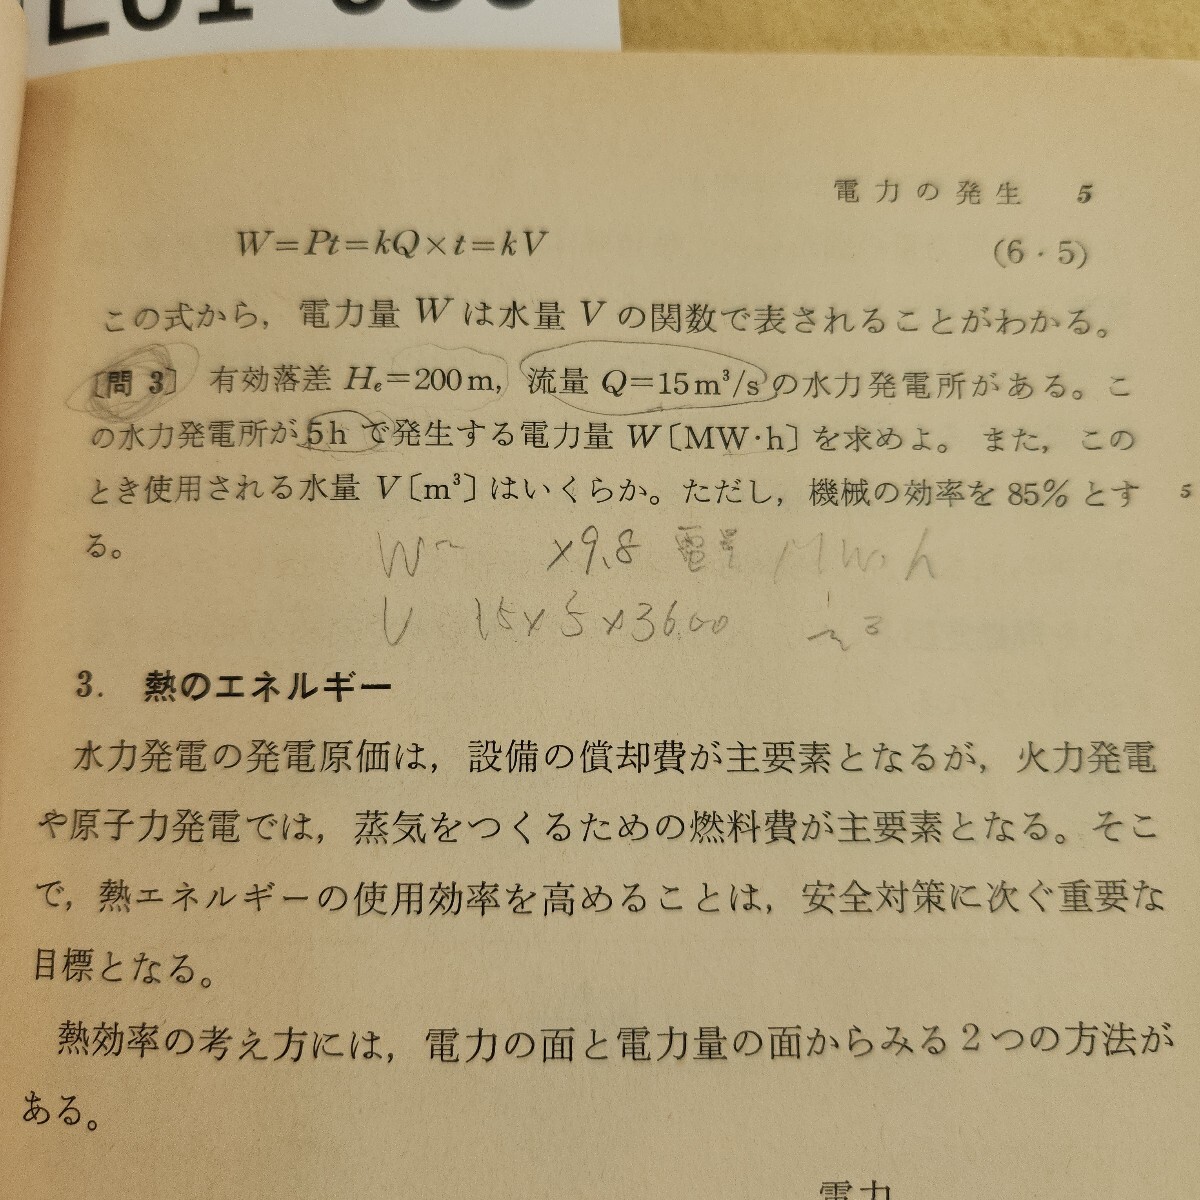 電力の発生 5
W=Pt=kQ×t=kV (6・5)
この式から，電力量 W は水量 V の関数で表されることがわかる。
〔問 3〕 有効落差 Hₑ=200m，流量 Q=15m³/s の水力発電所がある。こ
の水力発電所が 5h で発生する電力量 W〔MW・h〕を求めよ。また，この
とき使用される水量 V〔m³〕はいくらか。ただし，機械の効率を 85% とす 5
る。
W ×9.8 MW・h
V 15×5×3600 m³
3. 熱のエネルギー
水力発電の発電原価は，設備の償却費が主要素となるが，火力発電
や原子力発電では，蒸気をつくるための燃料費が主要素となる。そこ
で，熱エネルギーの使用効率を高めることは，安全対策に次ぐ重要な
目標となる。
熱効率の考え方には，電力の面と電力量の面からみる2つの方法が
ある。
電力